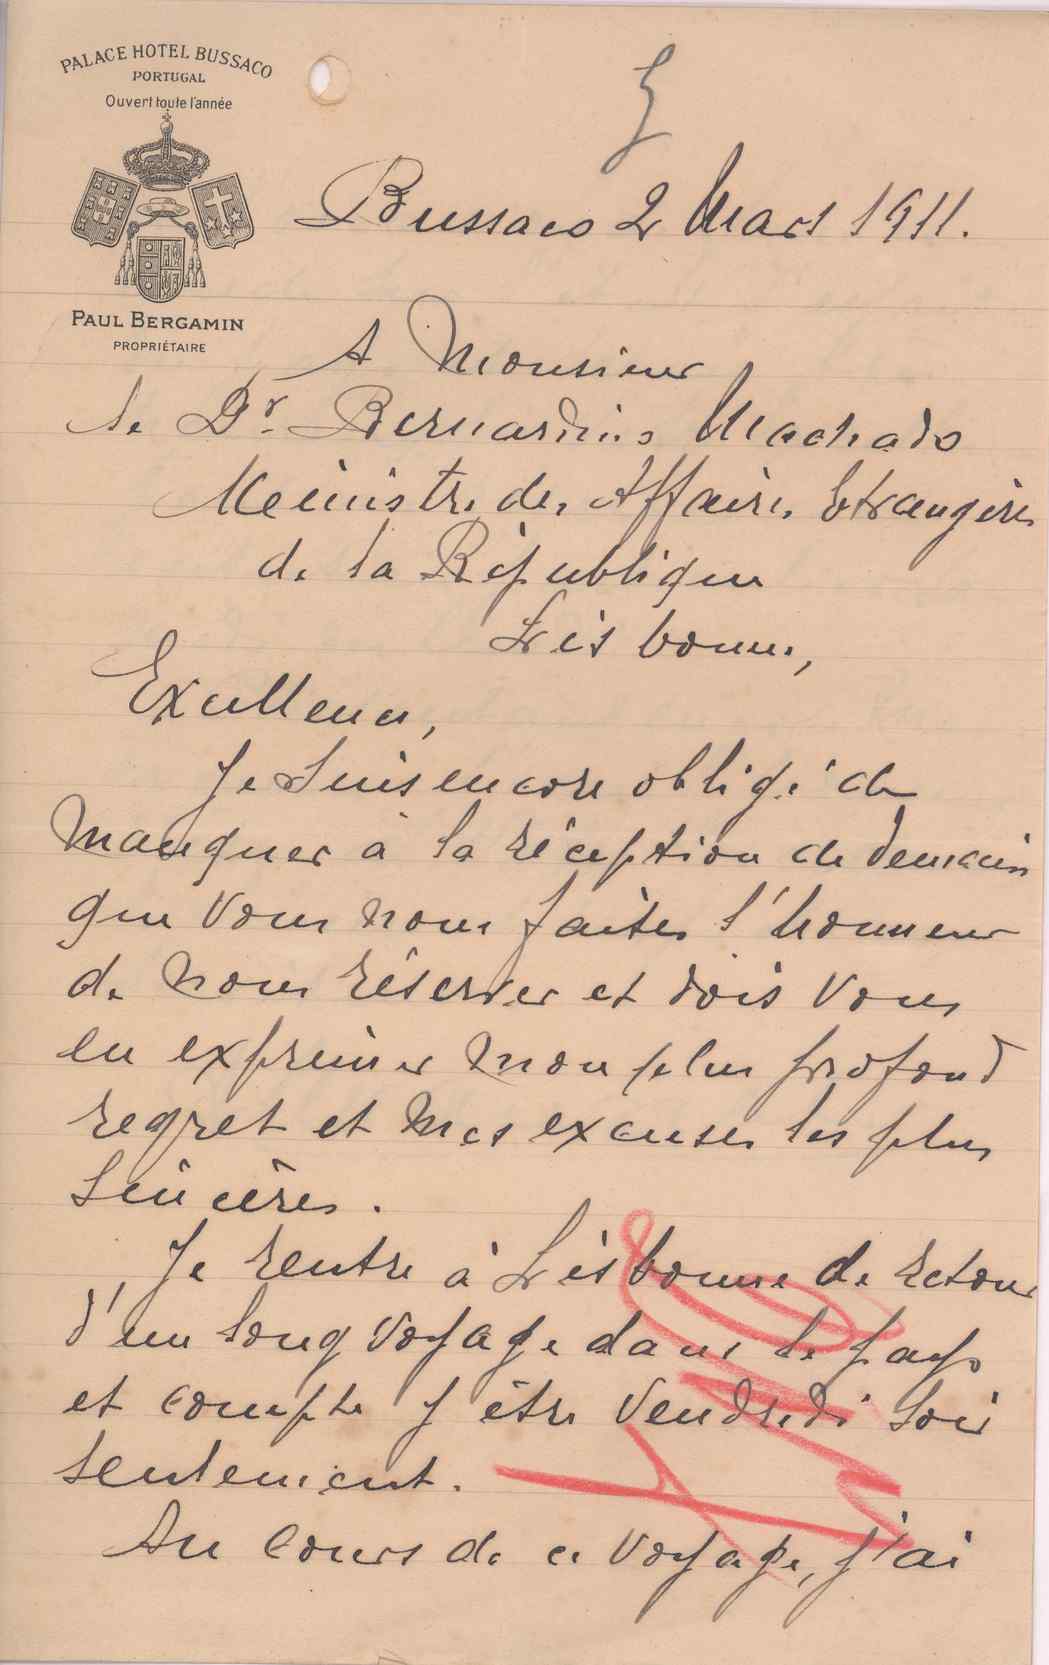 PALACE HOTEL BUSSACO
PORTUGAL
Ouvert toute l'année
PAUL BERGAMIN
PROPRIÉTAIRE
Bussaco 2 Mars 1911.
A Monsieur
le Dr. Bernardino Machado
Ministre des Affaires Etrangères
de la République
Lisbonne,
Excellence,
Je suis encore obligé de
manquer à la réception de demain
que vous nous faites l'honneur
de nous réserver et dois vous
en exprimer mon plus profond
regret et mes excuses les plus
sincères.
Je rentre à Lisbonne de retour
d'un long voyage dans le pays
et compte y être Vendredi soir
seulement.
Au cours de ce voyage, j'ai